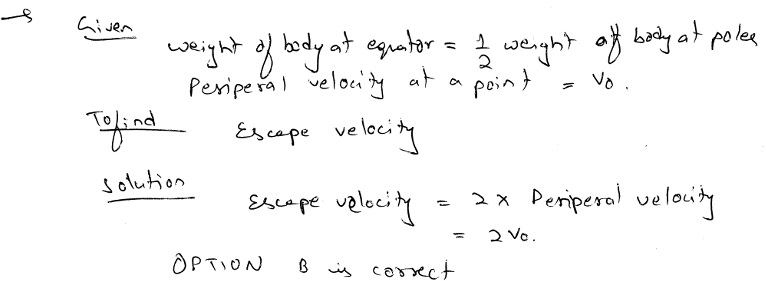 → Given
weight of body at equator = 1/2 weight of body at poles
Periperal velocity at a point = V0.
To find Escape velocity
Solution
Escape velocity = 2 x Periperal velocity
= 2V0.
OPTION B is correct